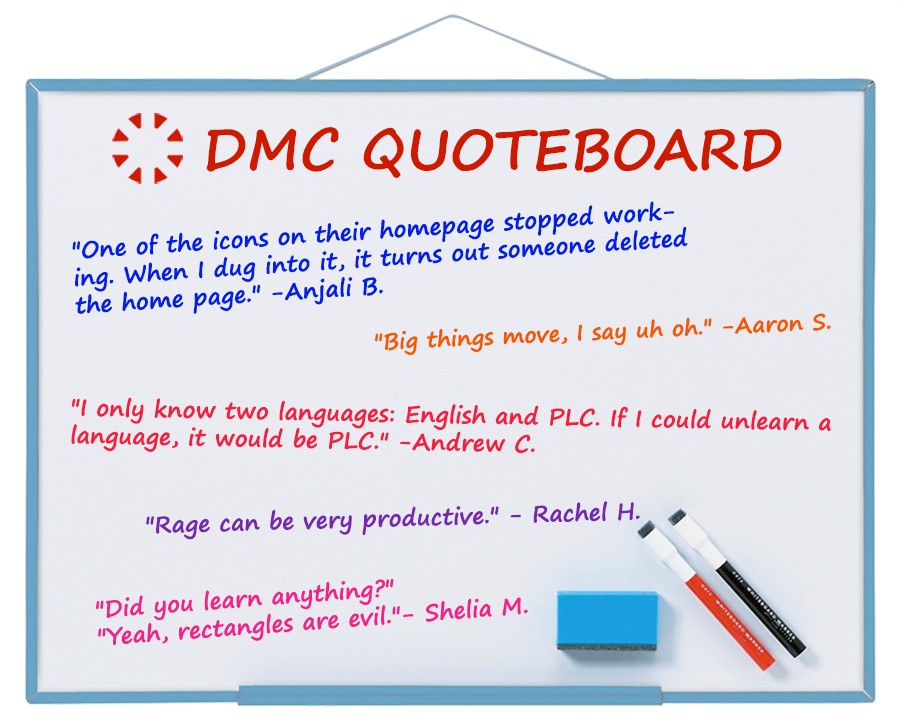 DMC QUOTEBOARD
"One of the icons on their homepage stopped work-
ing. When I dug into it, it turns out someone deleted
the home page." -Anjali B.
"Big things move, I say uh oh." -Aaron S.
"I only know two languages: English and PLC. If I could unlearn a
language, it would be PLC." -Andrew C.
"Rage can be very productive." - Rachel H.
"Did you learn anything?"
"Yeah, rectangles are evil."- Shelia M.